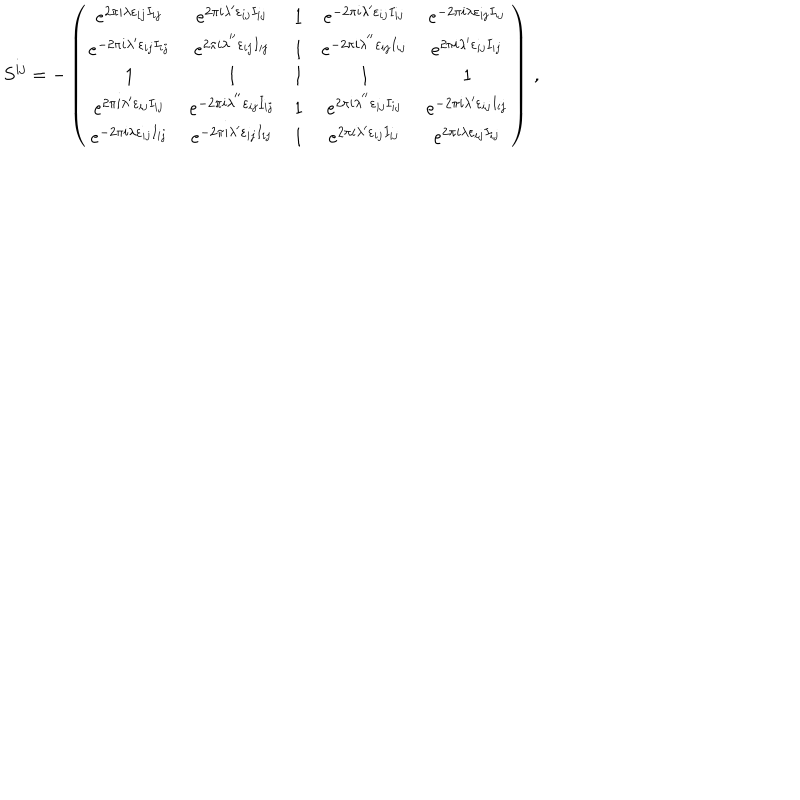 S^{ij} = - \left( \begin{array}{ccccc} e^{2\pi i\lambda\varepsilon_{ij}I_{ij}} & e^{2\pi i\lambda'\varepsilon_{ij}I_{ij}} & 1 & e^{-2\pi i\lambda'\varepsilon_{ij}I_{ij}} & e^{-2\pi i\lambda\varepsilon_{ij}I_{ij}} \\
e^{-2\pi i\lambda'\varepsilon_{ij}I_{ij}} & e^{2\pi i\lambda''\varepsilon_{ij}I_{ij}} & 1 & e^{-2\pi i\lambda''\varepsilon_{ij}I_{ij}} & e^{2\pi i\lambda'\varepsilon_{ij}I_{ij}} \\
1 & 1 & 1 & 1 & 1 \\
e^{2\pi i\lambda'\varepsilon_{ij}I_{ij}} & e^{-2\pi i\lambda''\varepsilon_{ij}I_{ij}} & 1 & e^{2\pi i\lambda''\varepsilon_{ij}I_{ij}} & e^{-2\pi i\lambda'\varepsilon_{ij}I_{ij}} \\
e^{-2\pi i\lambda\varepsilon_{ij}I_{ij}} & e^{-2\pi i\lambda'\varepsilon_{ij}I_{ij}} & 1 & e^{2\pi i\lambda'\varepsilon_{ij}I_{ij}} & e^{2\pi i\lambda\varepsilon_{ij}I_{ij}} \end{array} \right) ,